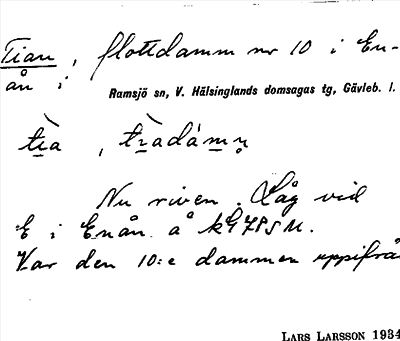 Tian, flottdamm nr 10 i En-
ån i
Ramsjö sn, V. Hälsinglands domsagas tg, Gävleb. l.
tìa, tràdám̥
Nu riven. Låg vid
E i Enån å kG7PSM.
Var den 10:e dammen uppifrå
LARS LARSSON 1934